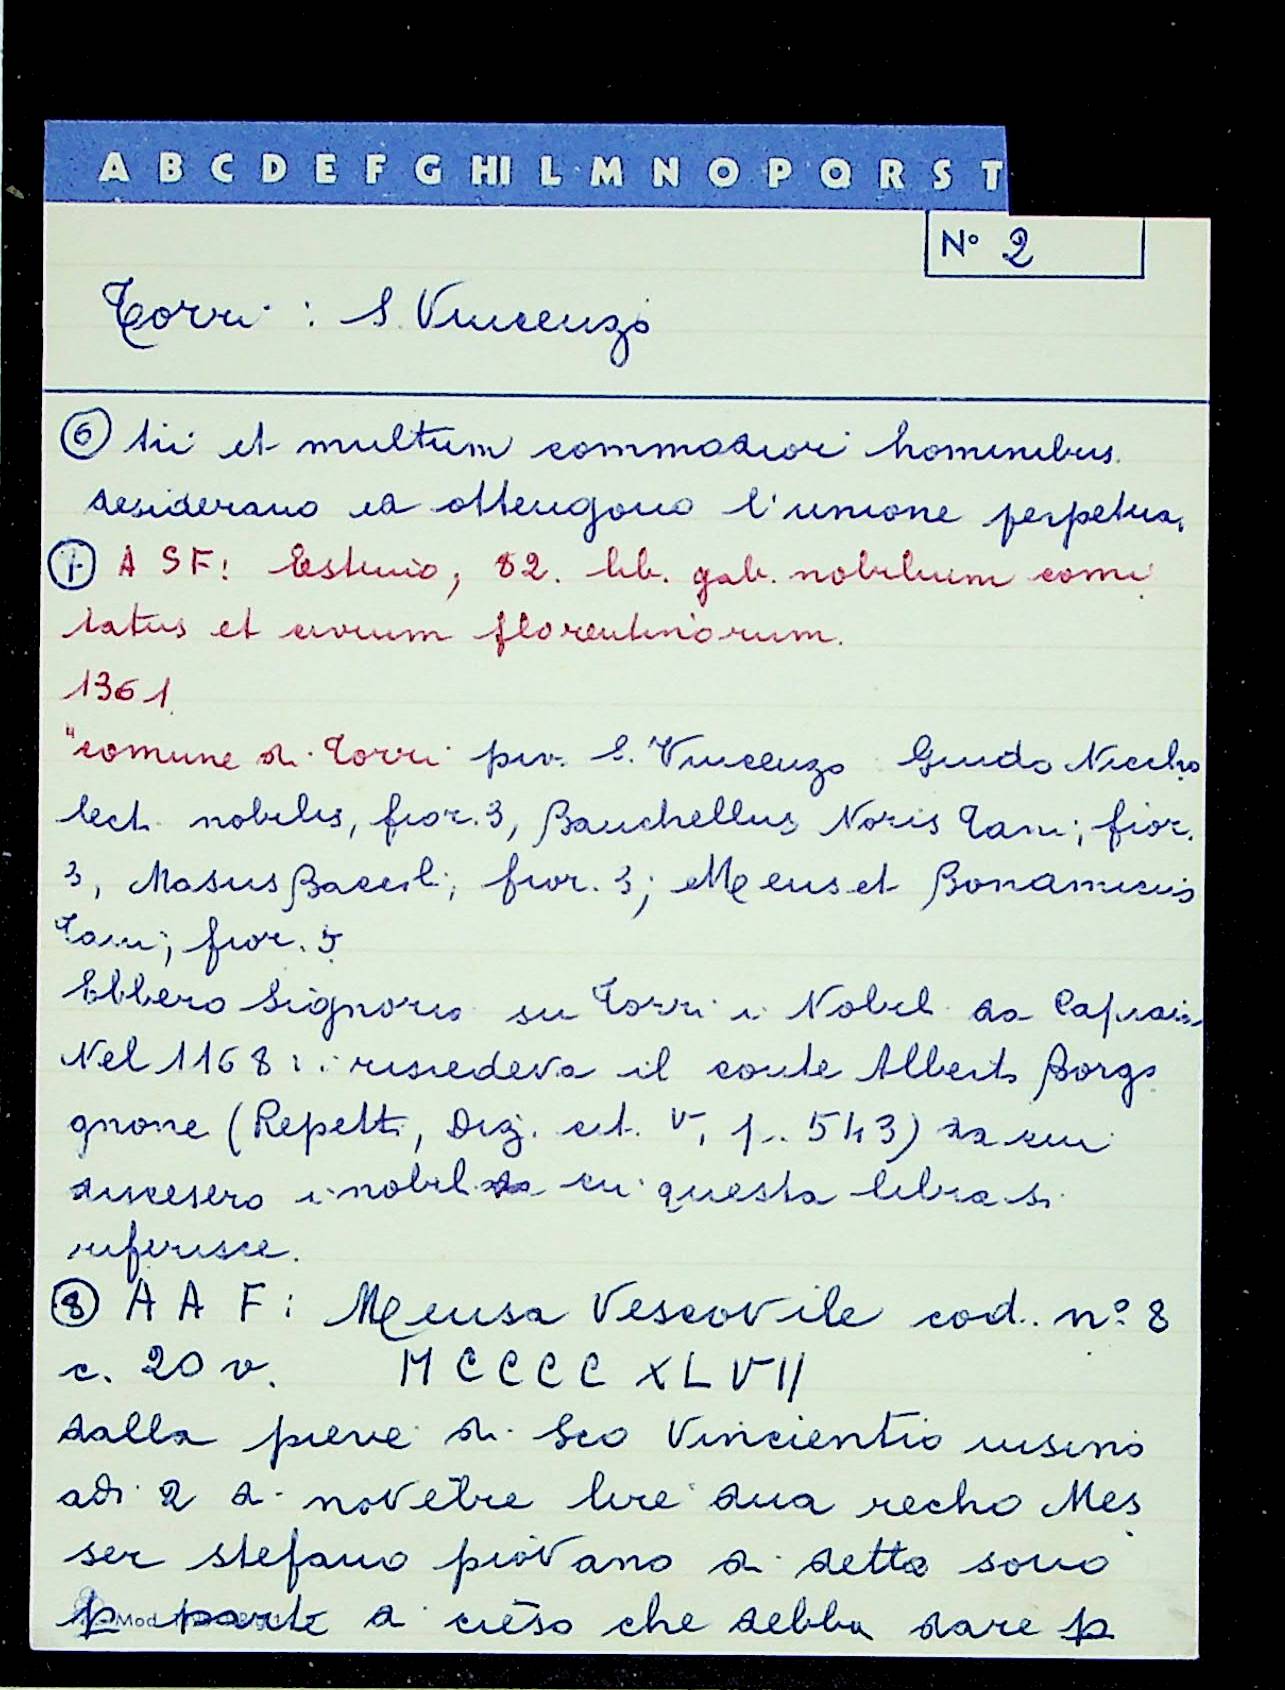 A B C D E F G HI L M N O P Q R S T
N° 2
Torri : S. Vincenzo
⑥ tii et multum commodiori hominibus.
desiderano ed ottengono l'unione perpetua.
⑦ A S F: Estimo, 82. lib. gab. nobilium comi
tatus et civium florentinorum.
1361.
"comune di Torri piv. S. Vincenzo Guido Niccho
lect. nobiles, fior. 3, Banchellus Noris Tani; fior.
3, Masus Baccil; fior. 3; Meus et Bonamicus
Tani; fior. 5
Ebbero Signoria su Torri i Nobil da Capraia.
Nel 1168 ivi risiedeva il conte Alberto Borgo
gnone (Repetti, Diz. cit. V, p. 543) da cui
discesero i nobil cui questa libra si
riferisce.
⑧ A A F: Mensa Vescovile cod. n° 8
c. 20 v. MCCCCXLVII
dalla pieve di Sco Vincientio insino
adi 2 di novēbre lire dua recho Mes
ser stefano piovano di detto sono
p parte di ciēso che debba dare p